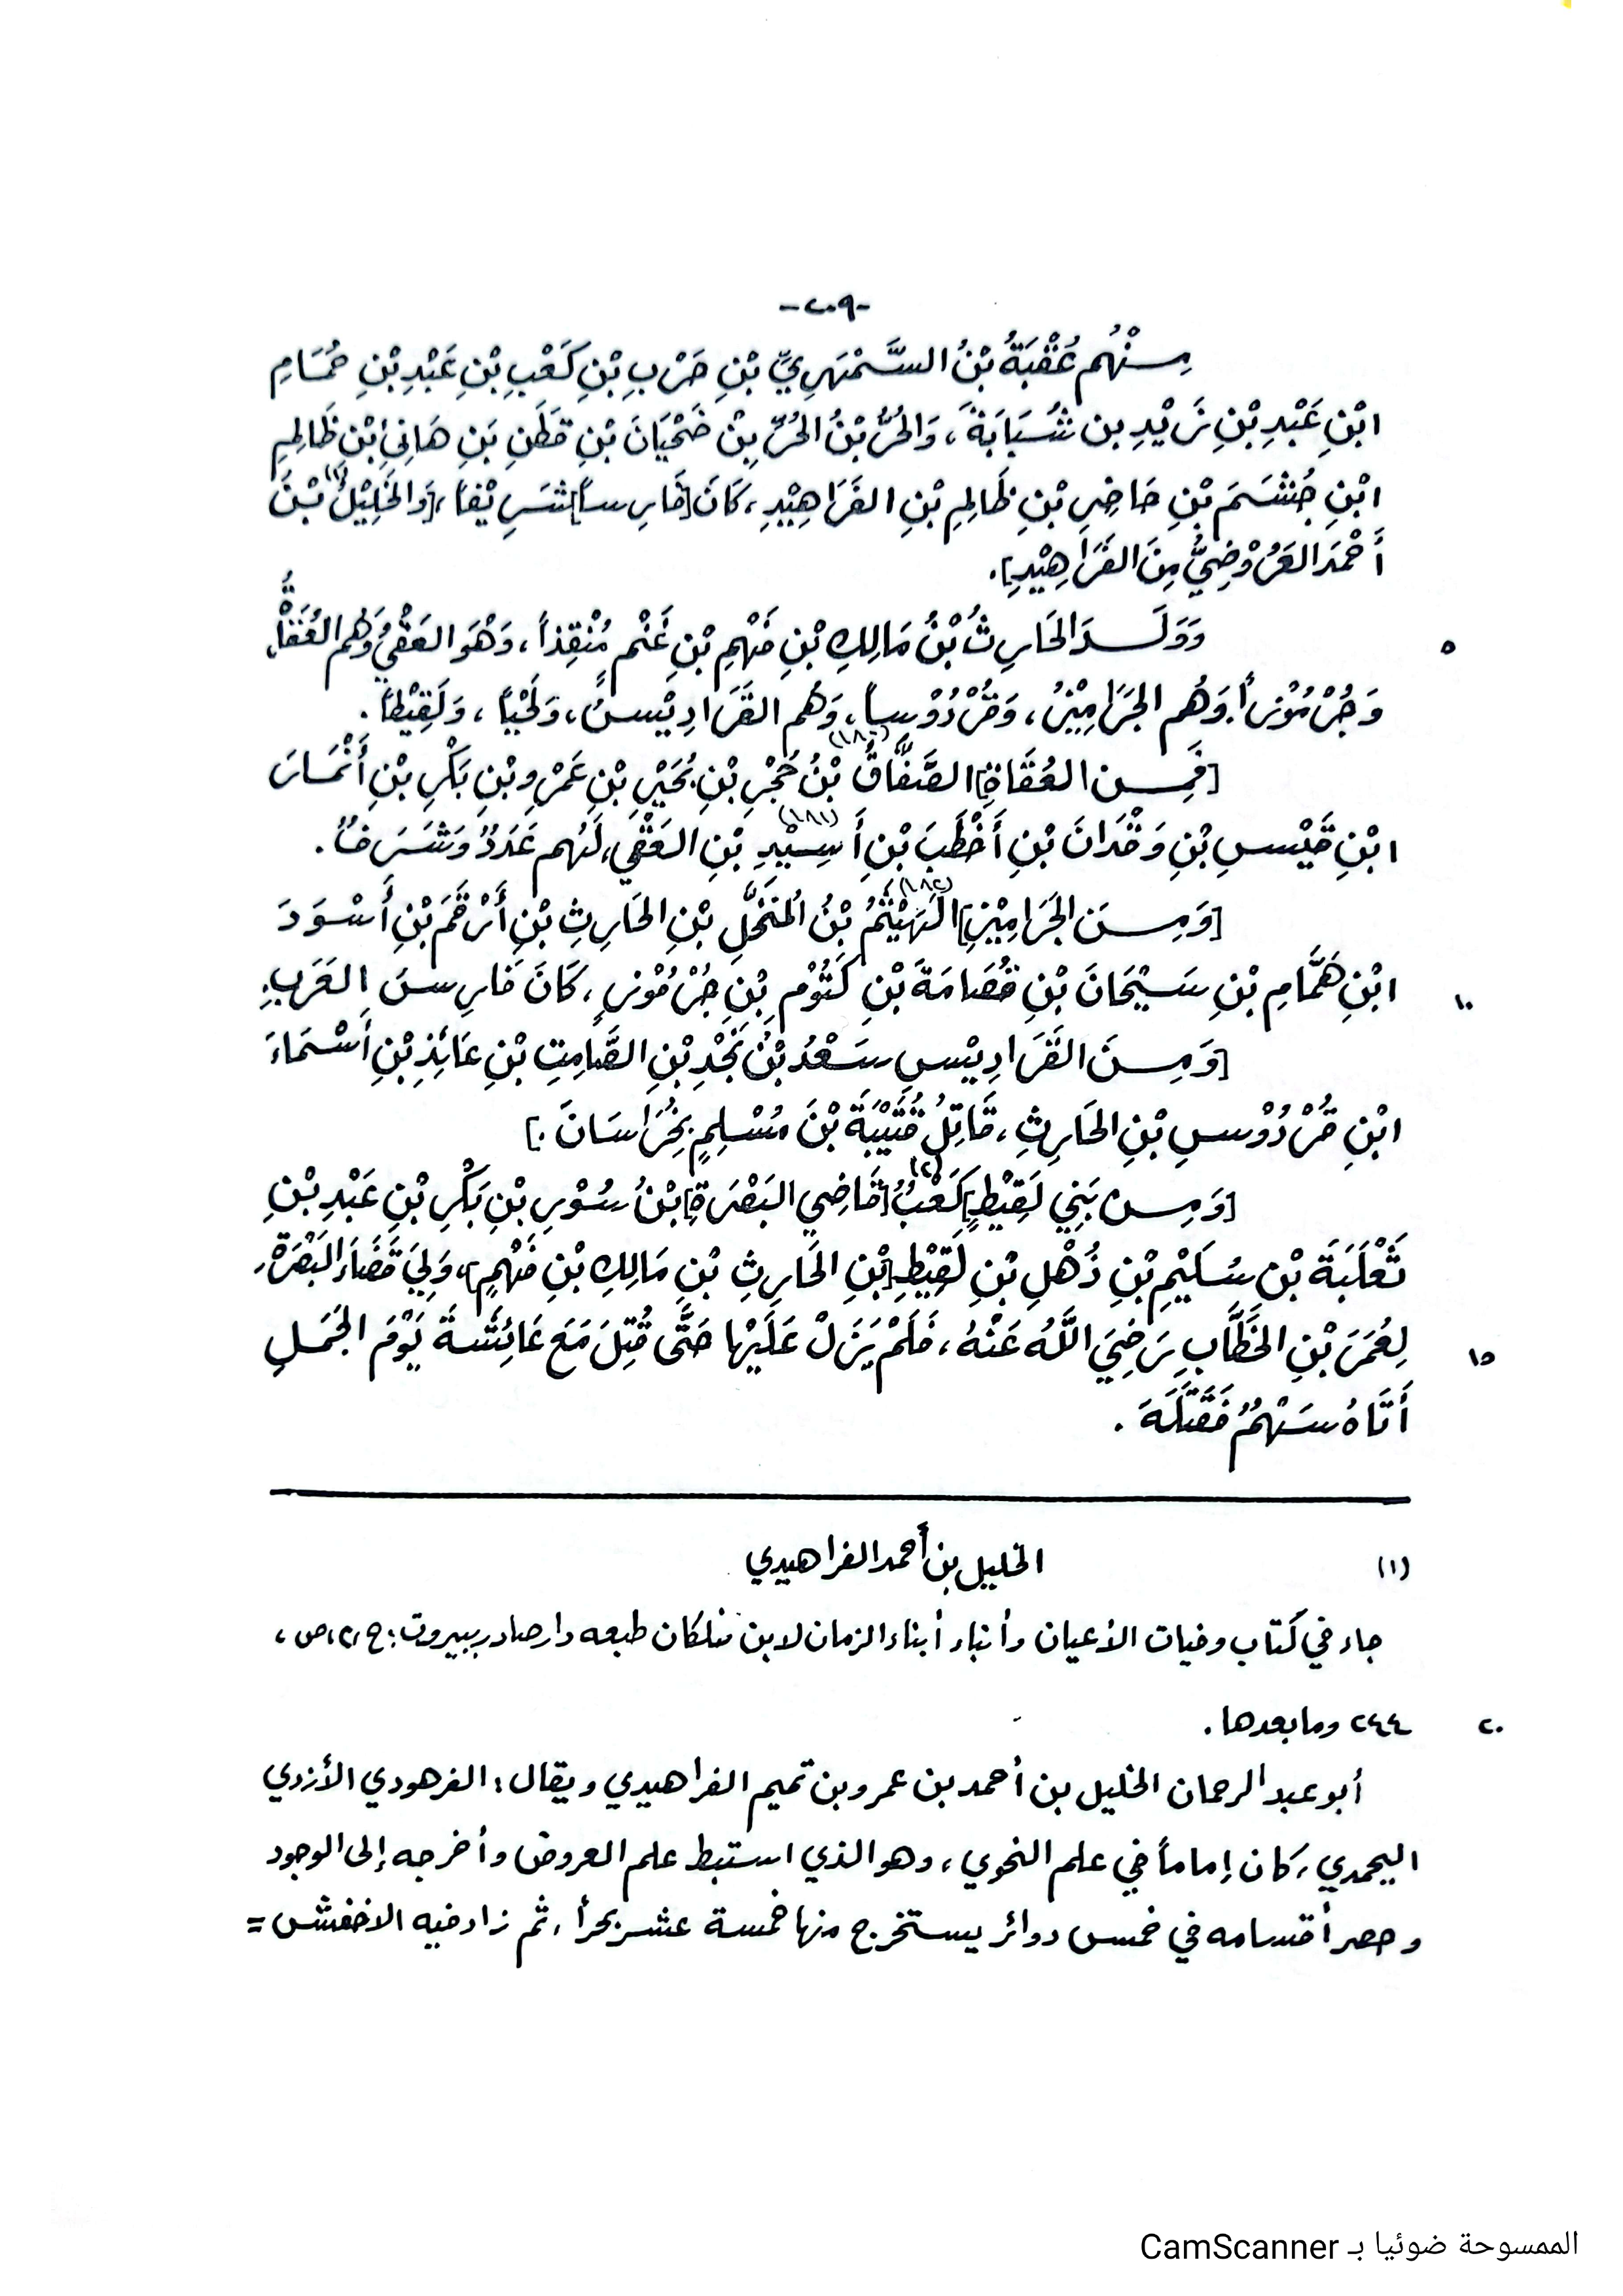 -٢٠٩-
مِنْهُم عُقْبَةُ بْنُ السَّمْهَرِيِّ بْنِ حَرْبِ بْنِ كَعْبِ بْنِ عَبْدِ بْنِ حُمَامِ
ابْنِ عَبْدِ بْنِ زَيْدِ بن شَبَابَةَ، وَالحُرُّ بْنُ الحُرِّ بِنْ ضَحْيَانَ بْنِ قَطَنِ بَنِ هَانِئِ ابْنِ ظَالِمِ
ابْنِ جُشَمَ بْنِ حَاضِرِ بْنِ ظَالِمِ بْنِ الفَرَاهِيْدِ، كَانَ [فَارِساً] شَرِيْفاً، [وَالخَلِيْلُ(١) بْنُ
أَحْمَدَ العَرُوْضِيُّ مِنَ الفَرَاهِيْدِ].
٥ وَوَلَدَ الحَارِثُ بْنُ مَالِكِ بْنِ فَهْمِ بْنِ غَنْمِ مُنْقِذاً، وَهْوَ العَقْيُ وَهُم العُقَاةُ،
وَجُرْمُوْزاً وَهُم الجَرَامِيْزُ، وَقُرْدُوْساً، وَهُم القَرَادِيْسُ، وَلَحْيَاً، وَلَقِيْطاً.
[فَمِن العُقَاةِ] الصَّفَّاقُ(١٨٠) بْنُ حُجْرِ بْنِ بُجَيْرِ بْنِ عَمْرِو بْنِ بَكْرِ بْنِ أَنْمَارَ
ابْنِ قَيْسِ بْنِ وَقْدَانَ بْنِ أَخْطَبَ بْنِ أَسِيْدِ(١٨١) بْنِ العَقْيِ، لَهُم عَدَدٌ وَشَرَفٌ.
[وَمِنَ الجَرَامِيْزِ] الهَيْثَمُ(١٨٢) بْنُ المُنَخَّلِ بْنِ الحَارِثِ بْنِ أَرْقَمَ بْنِ أَسْوَدَ
١٠ ابْنِ هَمَّامِ بْنِ سَيْحَانَ بْنِ فُصَامَةَ بْنِ كُتُوْمِ بْنِ جُرْمُوْزٍ، كَانَ فَارِسَ العَرَبِ.
[وَمِنَ القَرَادِيْسِ سَعْدُ بْنُ نَجْدِ بْنِ الصَّامِتِ بْنِ عَائِذِ بْنِ أَسْمَاءَ
ابْنِ قُرْدُوْسِ بْنِ الحَارِثِ، قَاتِلُ قُتَيْبَةَ بْنَ مُسْلِمٍ بِخُرَاسَانَ.]
[وَمِنْ بَنِي لَقِيْطٍ] كَعْبُ(٢) [قَاضِي البَصْرَةِ] بْنُ سُوْرِ بْنِ بَكْرِ بْنِ عَبْدِ بْنِ
ثَعْلَبَةَ بْنِ سُلَيْمِ بْنِ ذُهْلِ بْنِ لَقِيْطِ [بْنِ الحَارِثِ بْنِ مَالِكِ بْنِ فَهْمٍ]، وَلِيَ قَضَاءَ البَصْرَةِ
١٥ لِعُمَرَ بْنِ الخَطَّابِ رَضِيَ اللَّهُ عَنْهُ، فَلَمْ يَزَلْ عَلَيْهَا حَتَّى قُتِلَ مَعَ عَائِشَةَ يَوْمَ الجَمَلِ
أَتَاهُ سَهْمٌ فَقَتَلَهُ.
(١) الخليل بن أحمد الفراهيدي
جاء في كتاب وفيات الأعيان وأنباء أبناء الزمان لابن خلكان طبعه دار صادر ببيروت: ج،٢،ص،
٢٠ ٢٤٤ وما بعدها.
أبو عبد الرحمان الخليل بن أحمد بن عمرو بن تميم الفراهيدي ويقال: الفرهودي الأزدي
اليحمدي، كان إماماً في علم النحوي، وهو الذي استبط علم العروض وأخرجه إلى الوجود
وحصر أقسامه في خمس دوائر يستخرج منها خمسة عشر بحرأ، ثم زاد فيه الاخفش =
الممسوحة ضوئيا بـ CamScanner